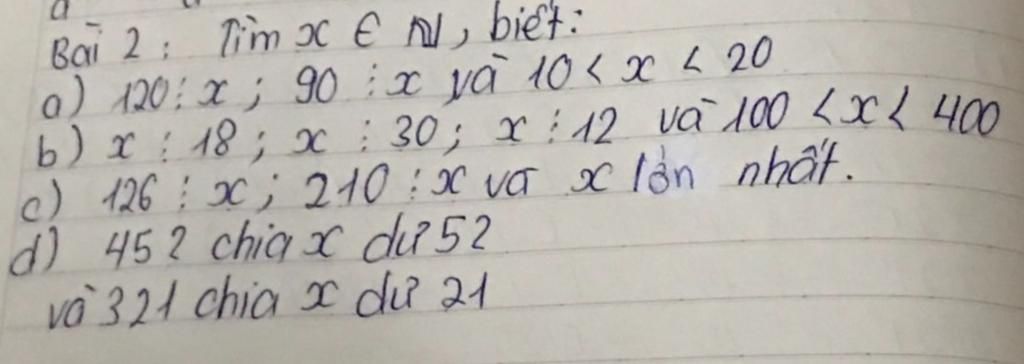 Bài 2: Tìm x ∈ N, biết:
a) 120 ⋮ x; 90 ⋮ x và 10 < x < 20
b) x ⋮ 18; x ⋮ 30; x ⋮ 12 và 100 < x < 400
c) 126 ⋮ x; 210 ⋮ x va x lớn nhất.
d) 452 chia x dư 52
và 321 chia x dư 21